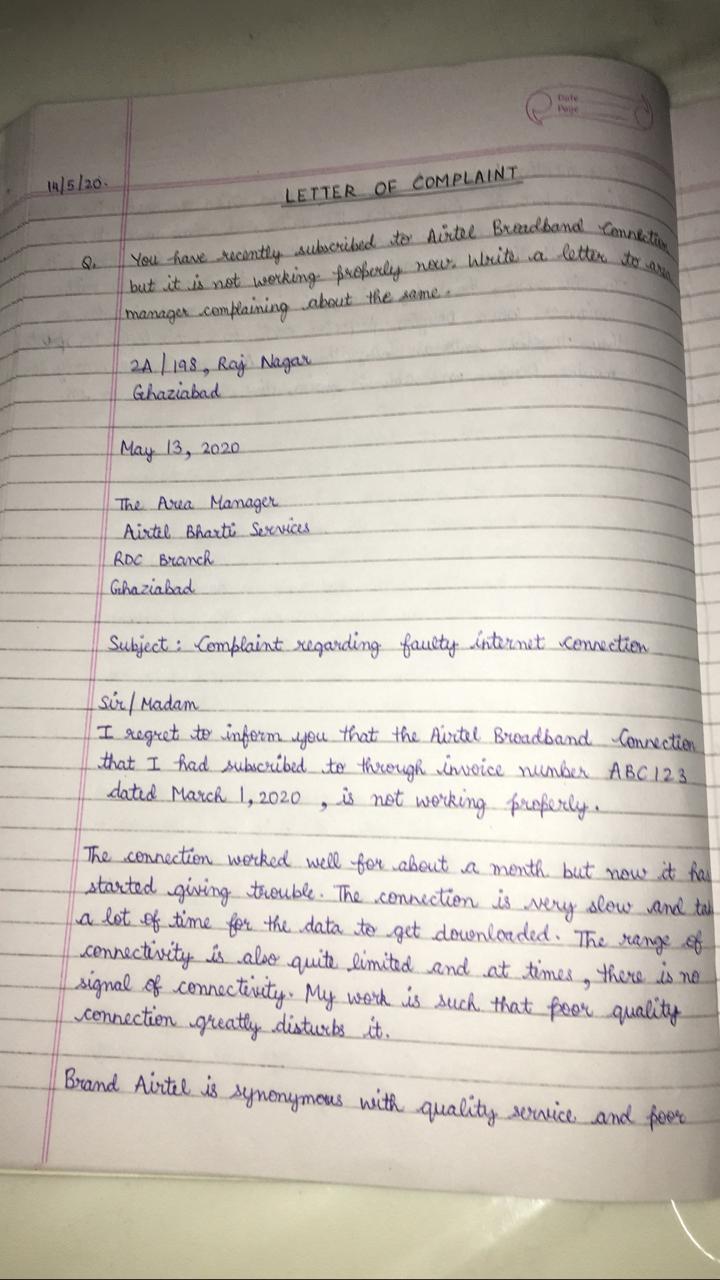 Date
Page
14/5/20.
LETTER OF COMPLAINT
Q. You have recently subscribed to Airtel Broadband Connection
but it is not working properly now. Write a letter to area
manager complaining about the same.
2A/198, Raj Nagar
Ghaziabad
May 13, 2020
The Area Manager
Airtel Bharti Services
RDC Branch
Ghaziabad
Subject: Complaint regarding faulty internet connection
Sir/Madam
I regret to inform you that the Airtel Broadband Connection
that I had subscribed to through invoice number ABC123
dated March 1, 2020, is not working properly.
The connection worked well for about a month but now it has
started giving trouble. The connection is very slow and
a lot of time for the data to get downloaded. The range of
connectivity is also quite limited and at times, there is no
signal of connectivity. My work is such that poor quality
connection greatly disturbs it.
Brand Airtel is synonymous with quality service and poor